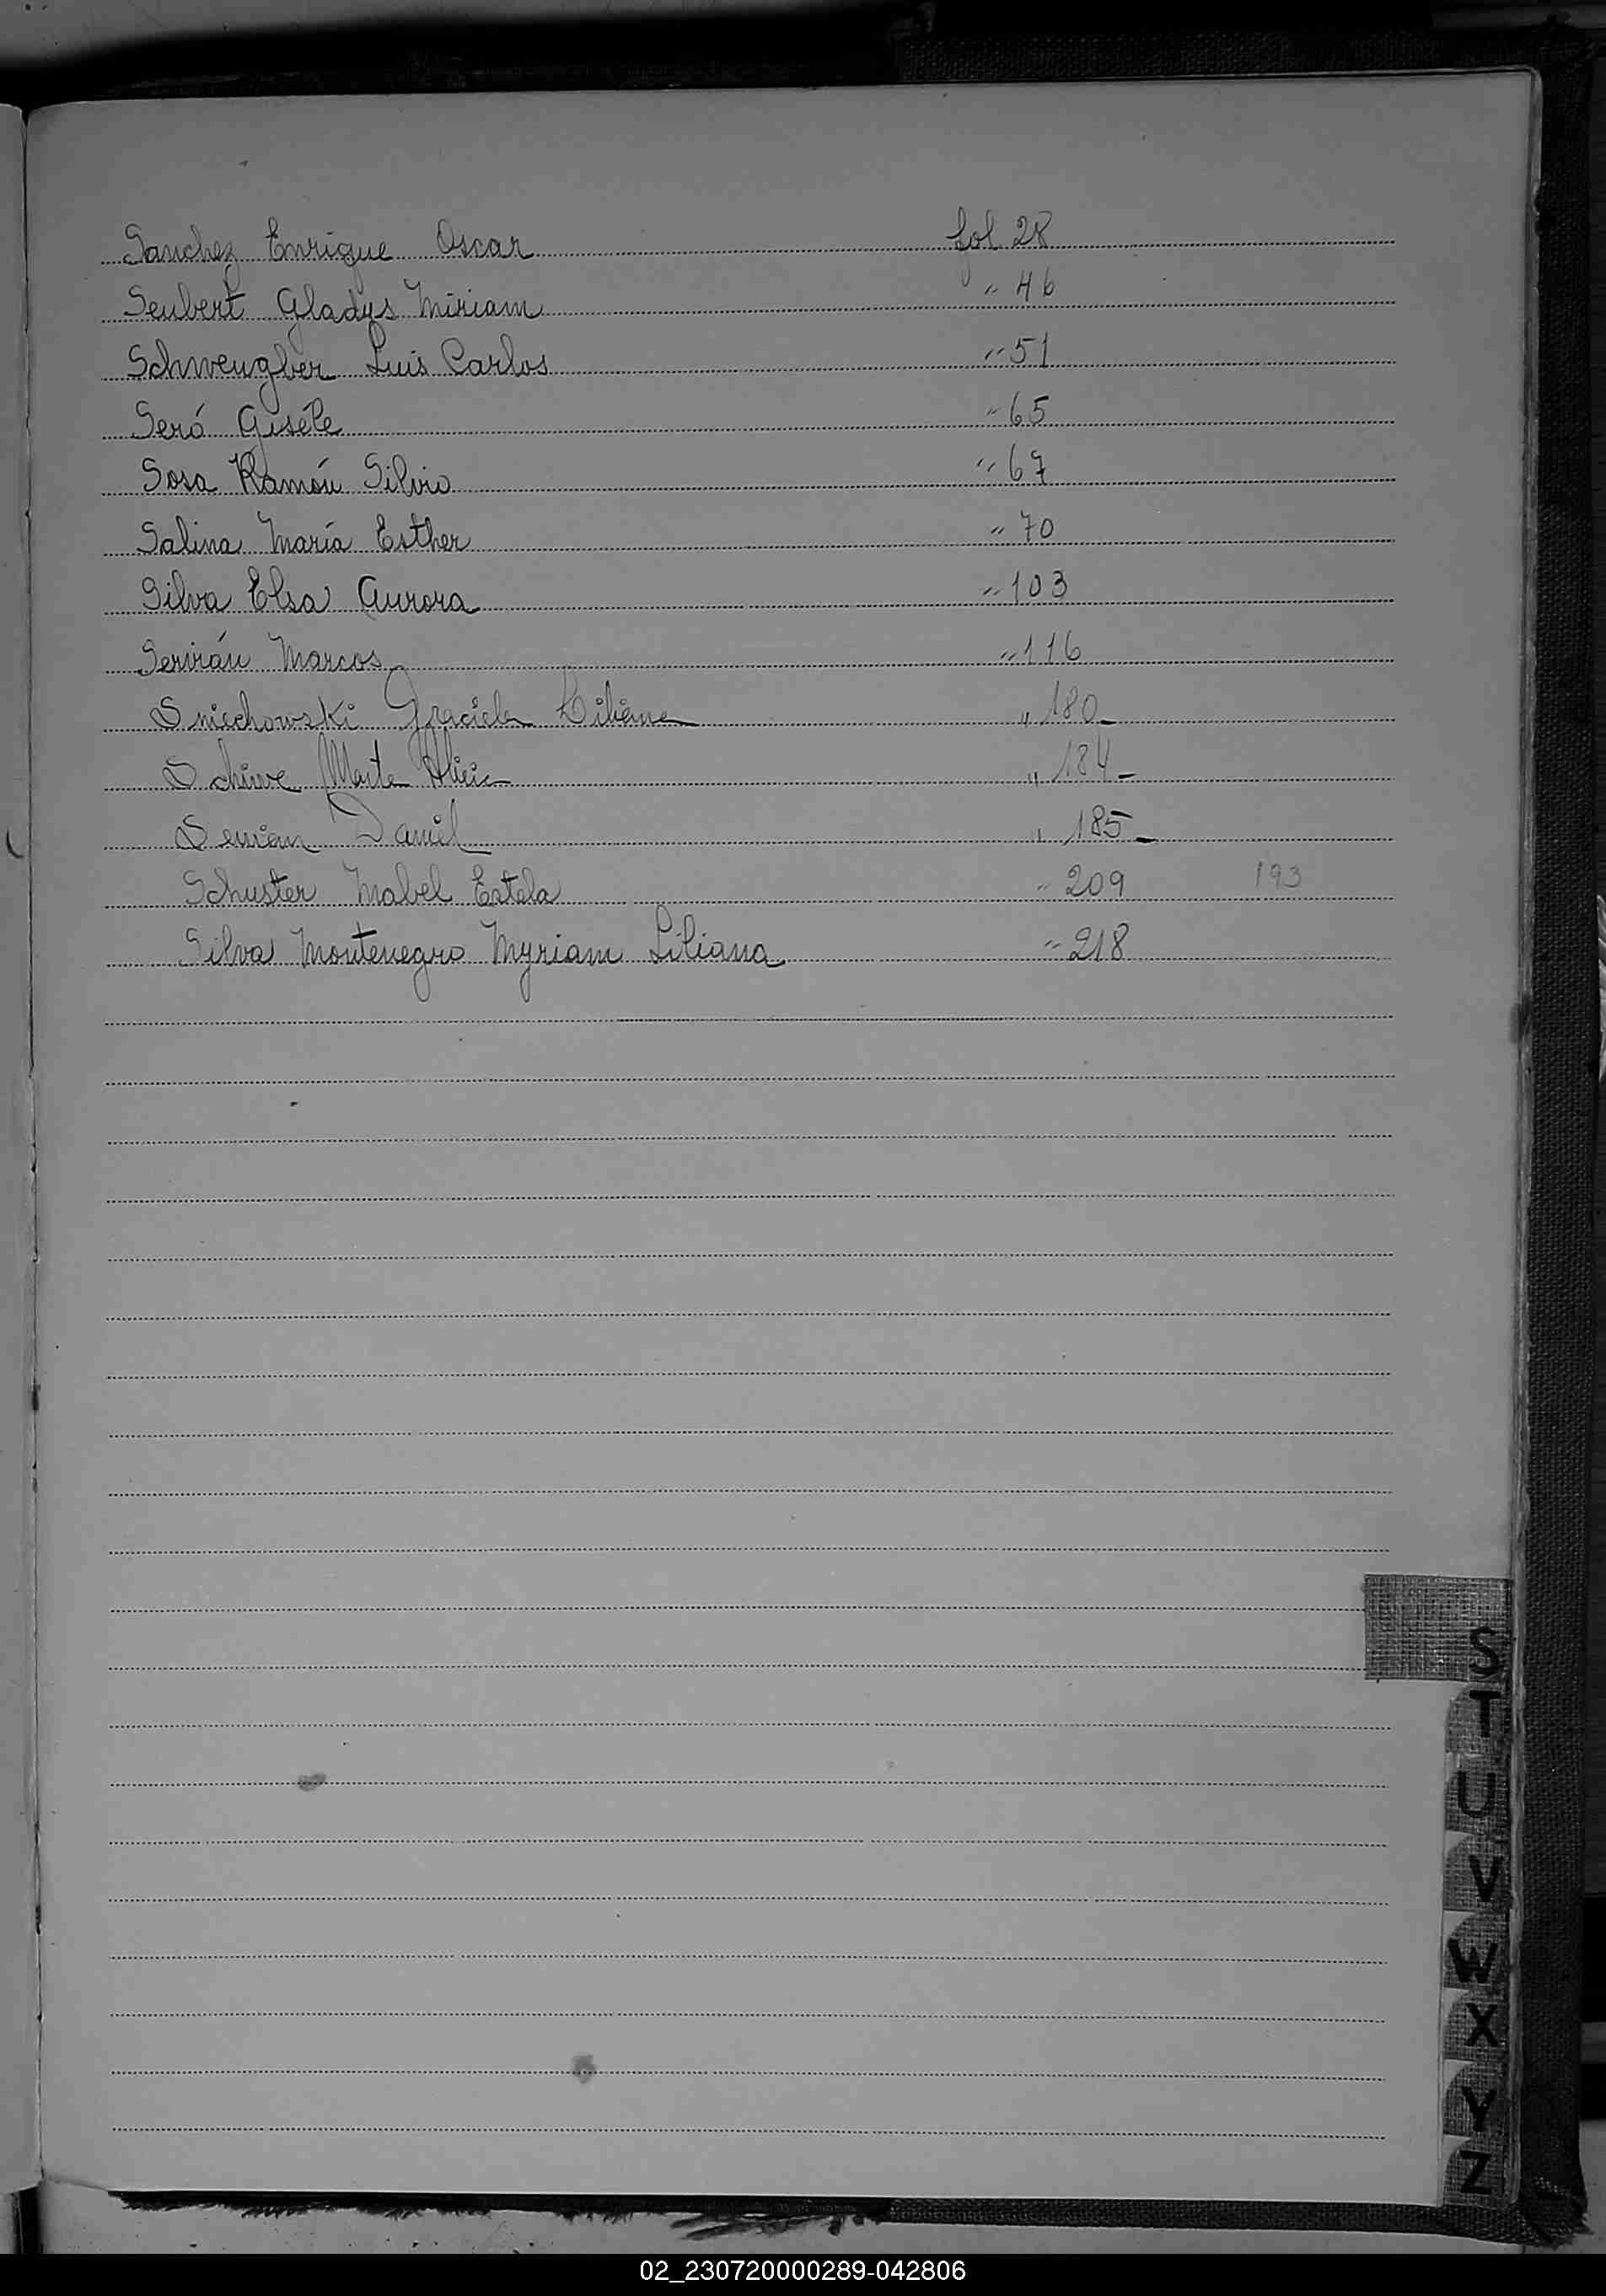 Sanchez Enrique Oscar fol 28
Seubert Gladys Miriam " 46
Schwengber Luis Carlos " 51
Seró Giséle " 65
Sosa Ramón Silvio " 67
Salina María Esther " 70
Silva Elsa Aurora " 103
Servián Marcos " 116
Sniechowski Graciela Liliana " 180-
Schiwe Marta Alicia " 184-
Servian Daniel " 185-
Schuster Mabel Estela " 209 193
Silva Montenegro Myriam Liliana " 218
S
T
U
V
W
X
Y
Z
02_230720000289-042806